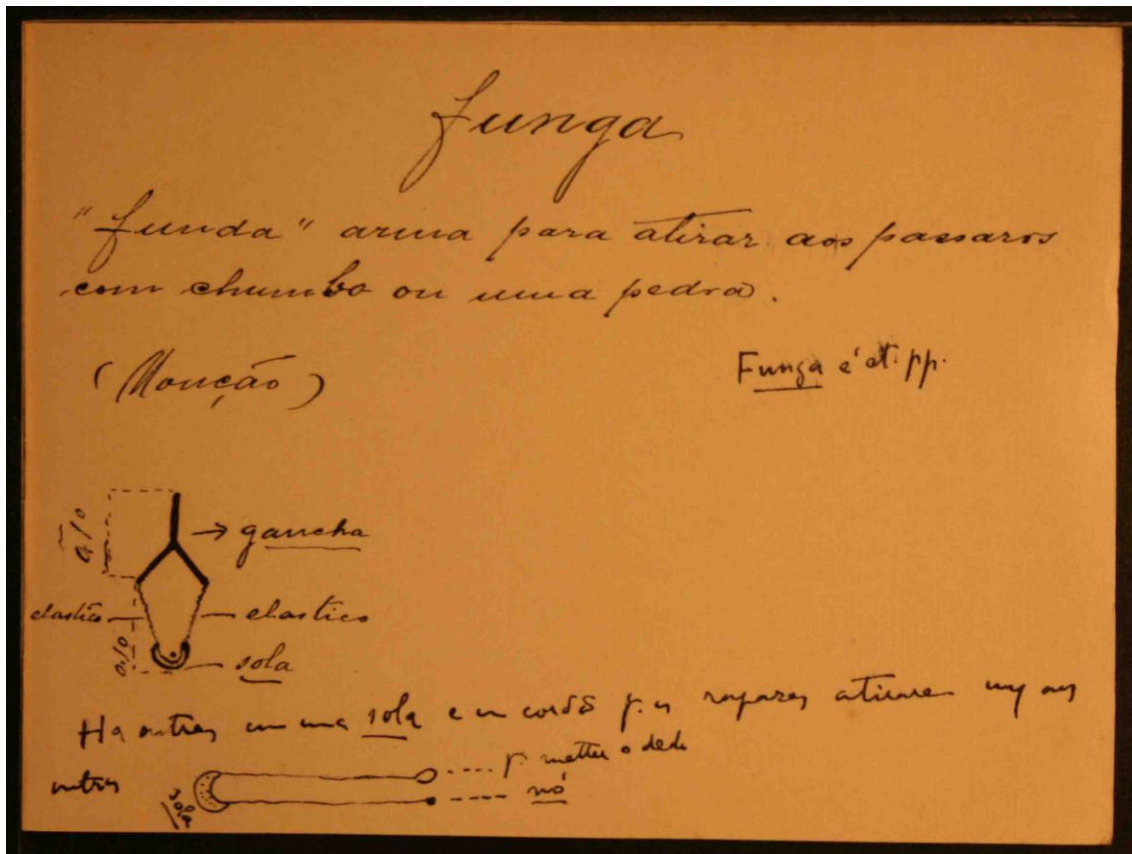 Funga
"funda" arma para atirar aos passaros
com chumbo ou uma pedra.
(Monção)
Funga é et. pp.
0,10
→ gancha
elastico
elastico
0,10
sola
Ha outras com uma sola e um cordã p. os rapazes atirarem uns aos
outros
sola
p. metter o dedo
nó